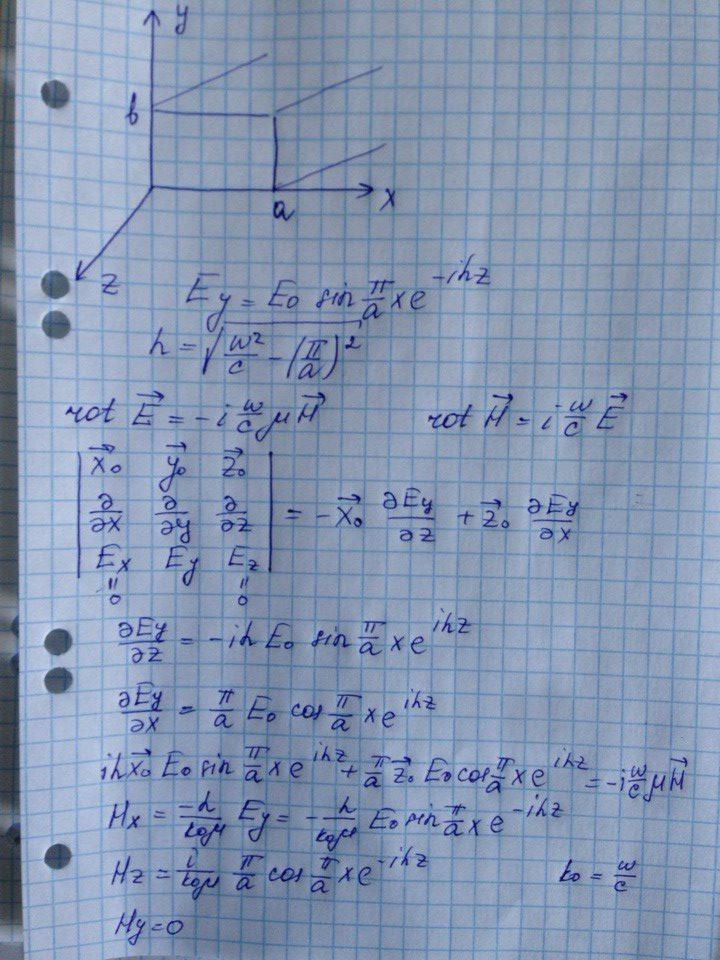 y
b
a
x
z
E_y = E_0 sin π/a x e^{-ihz}
h = √(ω²/c - (π/a)²)
rot E⃗ = -i ω/c μ H⃗     rot H⃗ = i ω/c E⃗
| x⃗₀  y⃗₀  z⃗₀ |
| ∂/∂x  ∂/∂y  ∂/∂z | = - x⃗₀ ∂E_y/∂z + z⃗₀ ∂E_y/∂x
| E_x  E_y  E_z |
"  "
0  0
∂E_y/∂z = -ih E_0 sin π/a x e^{ihz}
∂E_y/∂x = π/a E_0 cos π/a x e^{ihz}
ih x⃗₀ E_0 sin π/a x e^{ihz} + π/a z⃗₀ E_0 cos π/a x e^{ihz} = -i ω/c μ H⃗
H_x = -h/k_0μ E_y = - h/k_0μ E_0 sin π/a x e^{-ihz}
H_z = i/k_0μ π/a cos π/a x e^{-ihz}     k_0 = ω/c
H_y = 0